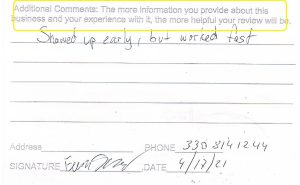 Additional Comments: The more information you provide about this
business and your experience with it, the more helpful your review will be.
Showed up early, but worked fast
Address PHONE 330 814 1244
SIGNATURE DATE 4/17/21